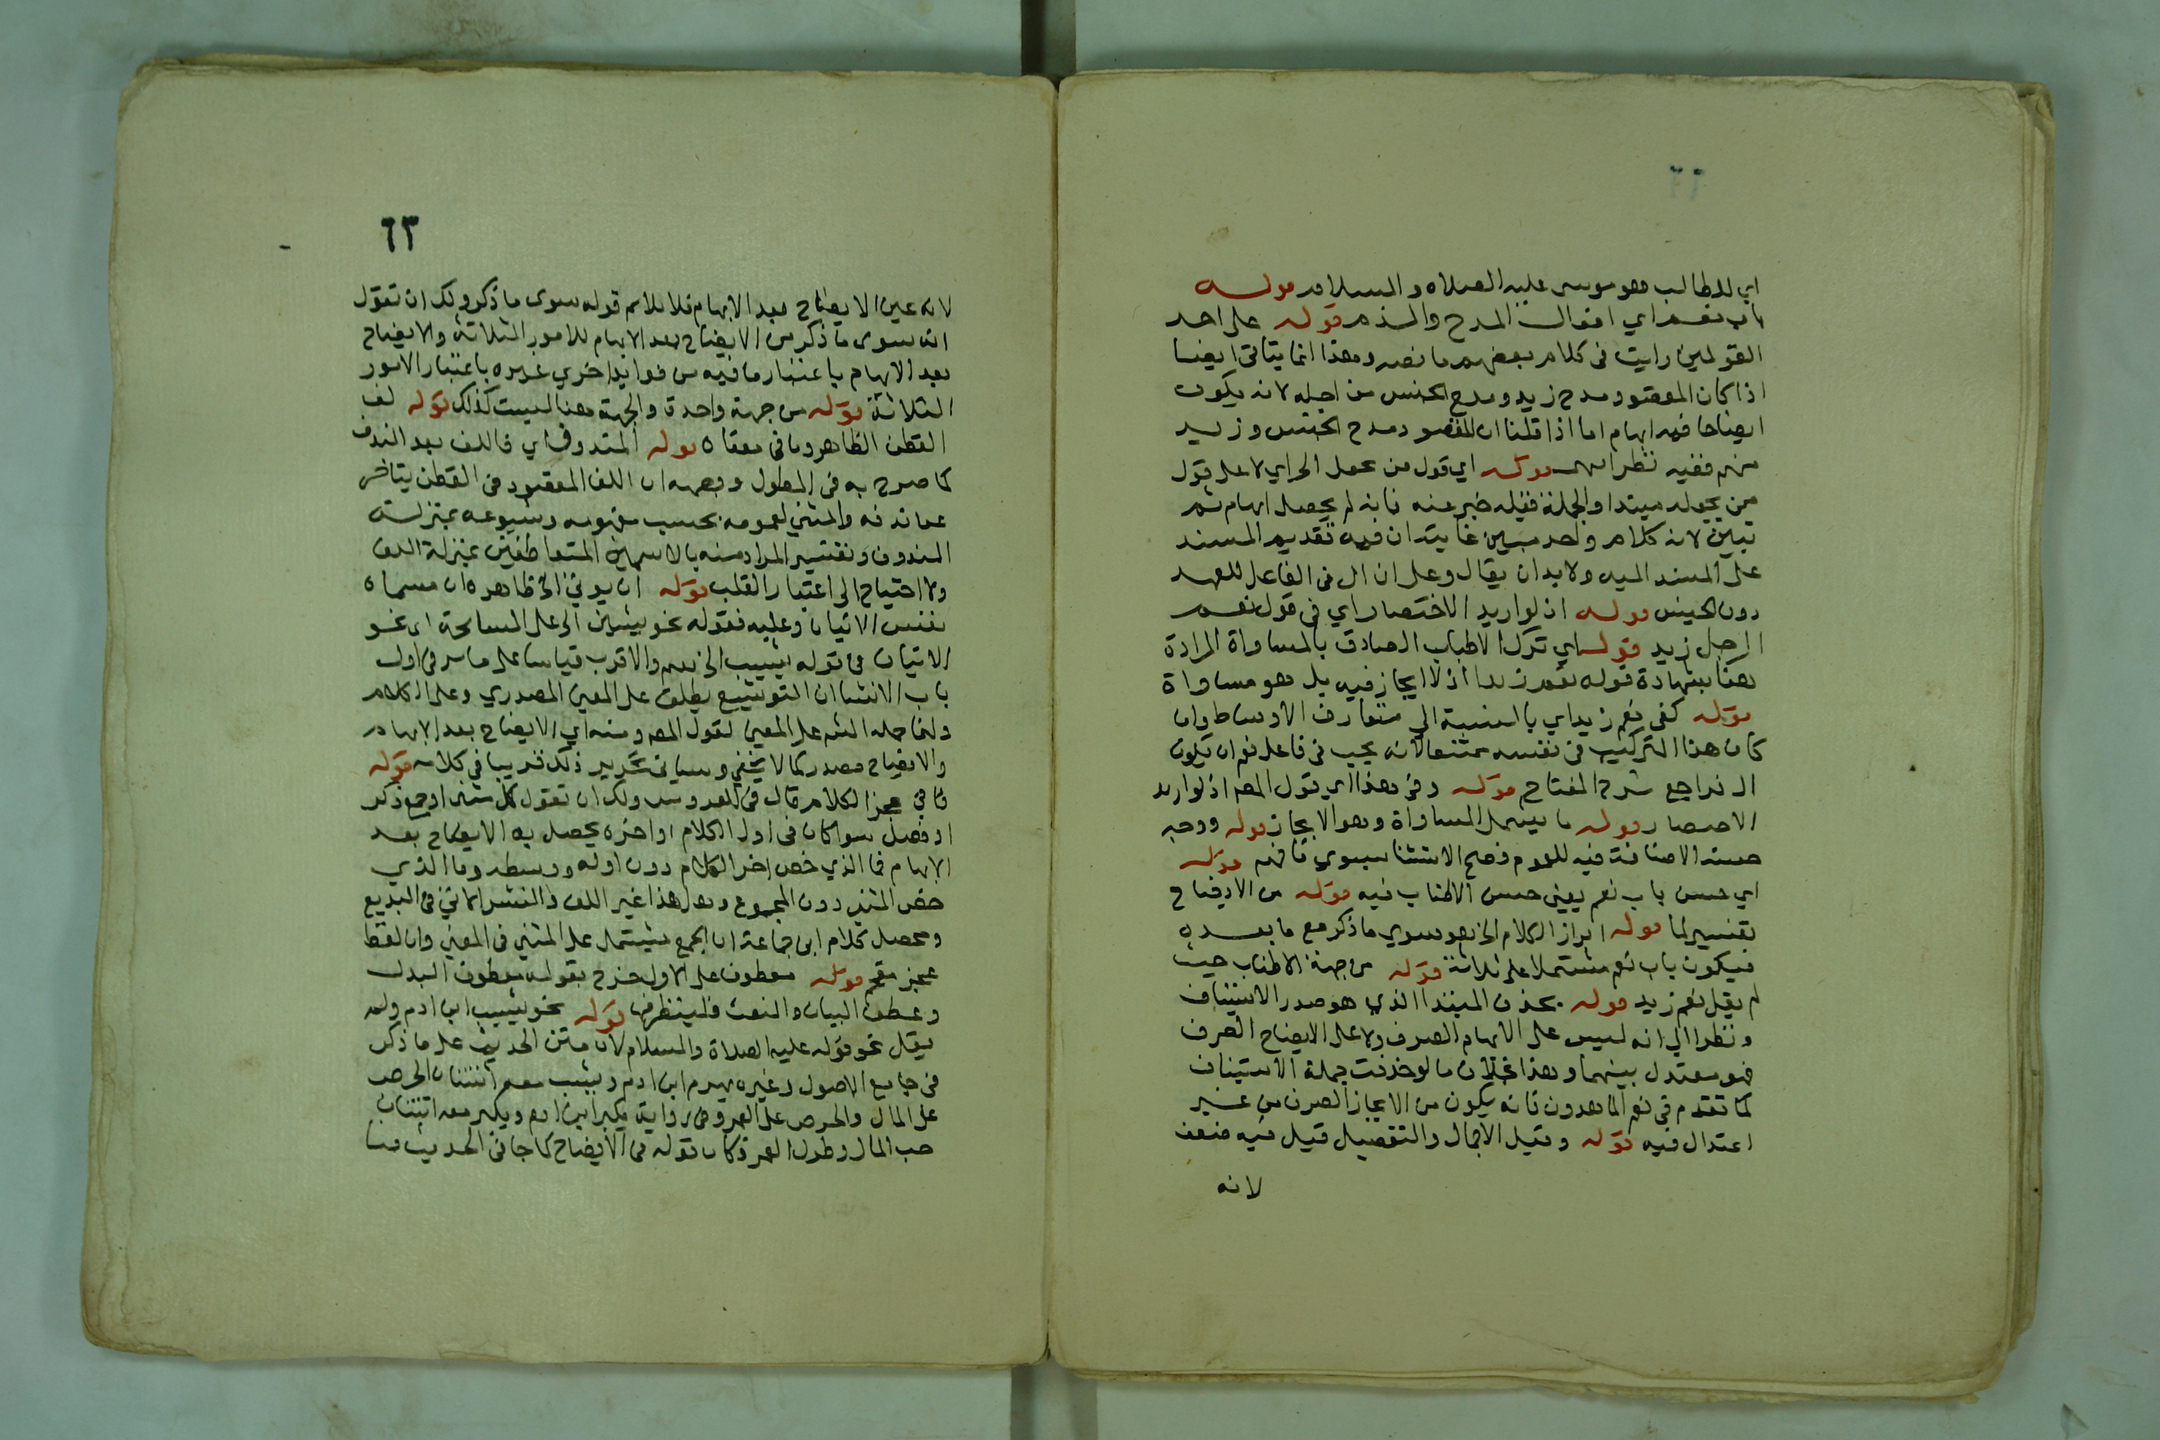 اي للطالب وهو موسى عليه الصلاة والسلام قوله
باب نعم اي افعال المدح والذم قوله على احد
القولين رايت في كلام بعضهم ما نصه وهذا انما يتاتى ايضا
اذا كان المقصود مدح زيد ومدح الجنس من اجله لانه يكون
ايضاحا فيه ابهام اما اذا قلنا ان المقصود مدح الجنس وزيد
منهم ففيه نظر انتهى قوله اي قول من يجعل الخ اي لا على قول
من يجعله مبتدا والجملة قبله خبر عنه فانه لم يحصل ابهام ثم
تبيين لانه كلام واحد مبين غايته ان فيه تقديم المسند
على المسند اليه ولا بد ان يقال وعلى ان ال في الفاعل للعهد
دون الجنس قوله اذ لو اريد الاختصار اي في قول نعم
الرجل زيد قوله اي ترك الاطناب الصادق بالمساواة المرادة
هنا بشهادة قوله نعم زيد اذ لا ايجاز فيه بل هو مساواة
قوله كفى نعم زيد اي بالنسبة الى متعارف الاوساط وان
كان هذا التركيب في نفسه ممتنعا لانه يجب في فاعل نعم ان يكون
ال فراجع شرح المفتاح قوله وفي هذا اي قول المص اذ لو اريد
الاختصار قوله ما يشمل المساواة وهو الايجاز قوله ووجه
حسنه الاضافة فيه للعموم فصح الاستثنا بسوى فافهم قوله
اي حسن باب نعم يعني حسن الاطناب فيه قوله من الايضاح
تفسير لما قوله ابراز الكلام الخ هو سوى ما ذكر مع ما بعده
فيكون باب نعم مشتملا على ثلاثة قوله من جهة الاطناب حيث
لم يقل نعم زيد قوله بحذف المبتدا الذي هو صدر الاستيناف
ونظرا الى انه ليس على الابهام الصرف ولا على الايضاح الصرف
فهو معتدل بينهما وهذا بخلاف ما لو حذفت جملة الاستيناف
كما تقدم في نعم الماهدون فانه يكون من الايجاز الصرف من غير
اعتدال فيه قوله وقيل الاجمال والتفصيل قيل فيه ضعف
لانه
٦٣
لانه عين الايضاح بعد الابهام فلا يلايم قوله سوى ما ذكر ولك ان تقول
انه سوى ما ذكر من الايضاح بعد الابهام للامور الثلاثة والايضاح
بعد الابهام باعتبار ما فيه من فوايد اخرى غيره باعتبار الامور
الثلاثة قوله من جهة واحدة والجهة هنا ليست كذلك قوله لف
القطن الظاهر وما في معناه قوله المندوف اي فاللف بعد الندف
كما صرح به في المطول ووجهه ان اللف المقصود في القطن يتاخر
عن ندفه والمثنى لعمومه بحسب مفهومه وشيوعه بمنزلة
المندوف وتفسير المراد منه بالاسمين المتعاطفين بمنزلة اللف
ولا احتياج الى اعتبار القلب قوله ان يوتى الخ ظاهره ان مسماه
نفس الاتيان وعليه فقوله نحو يشيب الخ على المسامحة اي نحو
الاتيان في قوله يشيب الخ نعم والاقرب قياسا على ما مر في اول
باب الانشا ان التوشيع يطلق على المعنى المصدري وعلى الكلام
وانما حمله الشم على المعنى لقول المصه ومنه اي الايضاح بعد الابهام
والايضاح مصدر كما لا يخفى وسياتي تحرير ذلك قريبا في كلامه قوله
في عجز الكلام قال في العروس ولك ان تقول كل شي اوجع ذكر
او فصل سوا كان في اول الكلام او اخره يحصل به الايضاح بعد
الابهام فما الذي خص اخر الكلام دون اوله ووسطه وما الذي
خص المثنى دون المجموع وهل هذا غير اللف والنشر الاتي في البديع
ومحصل كلام ابن جماعة ان الجمع مشتمل على المثنى في المعنى وان لفظ
عجز مقحم قوله معطوف على الاول خرج بقوله معطوف البدل
وعطف البيان والنعت فلينظر فيها قوله نحو يشيب ابن ادم ولم
يقل نحو قوله عليه الصلاة والسلام لان متن الحديث على ما ذكر
في جامع الاصول وغيره يهرم ابن ادم ويشب معه اثنتان الحرص
على المال والحرص على العمر وفي رواية يكبر ابن ادم ويكبر معه اثنتان
حب المال وطول العمر فكان قوله في الايضاح كما جا في الحديث